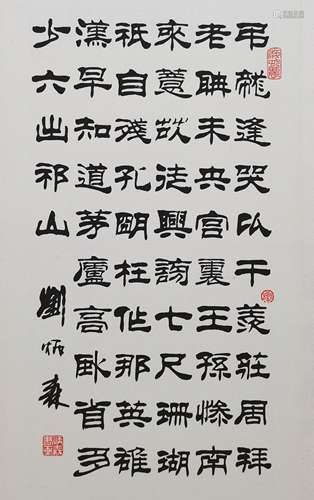 弔龍逢哭比干羨莊周拜
老聃未央宮裏王孫慘南
來薏苡徒興謗七尺珊瑚
祇自殘孔明枉作那英雄
漢早知道茅廬高臥省多
少六出祁山
劉炳森